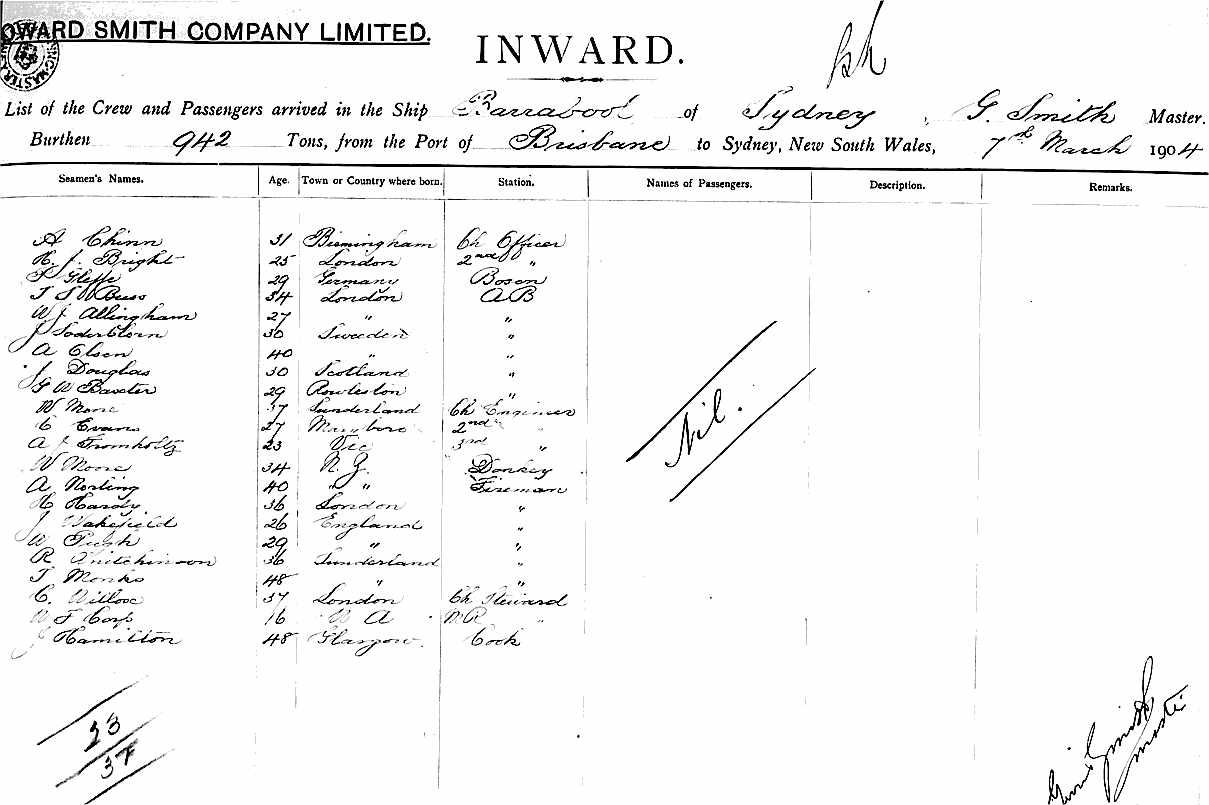 OWARD SMITH COMPANY LIMITED.
INWARD.
List of the Crew and Passengers arrived in the Ship Barrabool of Sydney, G. Smith Master.
Burthen 942 Tons, from the Port of Brisbane to Sydney, New South Wales, 7th March 1904
Seamen's Names. Age. Town or Country where born. Station. Names of Passengers. Description. Remarks.
A Chinn 31 Birmingham Ch Officer
H. J. Bright 25 London 2nd "
29 Germany Bosen
34 London AB
W J Allingham 27 " "
J 30 Sweden "
A Olsen 40 " "
J Douglas 30 Scotland "
G W Baxter 29 "
W 37 Sunderland Ch Engineer
C Evans 27 2nd "
A J Fromholtz 23 Vic 3rd "
W Moore 34 N. Z. Donkey
A Norling 40 " " Fireman
H Hardy 36 London "
J Wakefield 26 England "
W 29 " "
R 36 Sunderland "
T Monks 48 " "
C. 37 London Ch Steward
W F 16 W A
J Hamilton 48 Glasgow. Cook
Nil.
23
37
Smith
Master